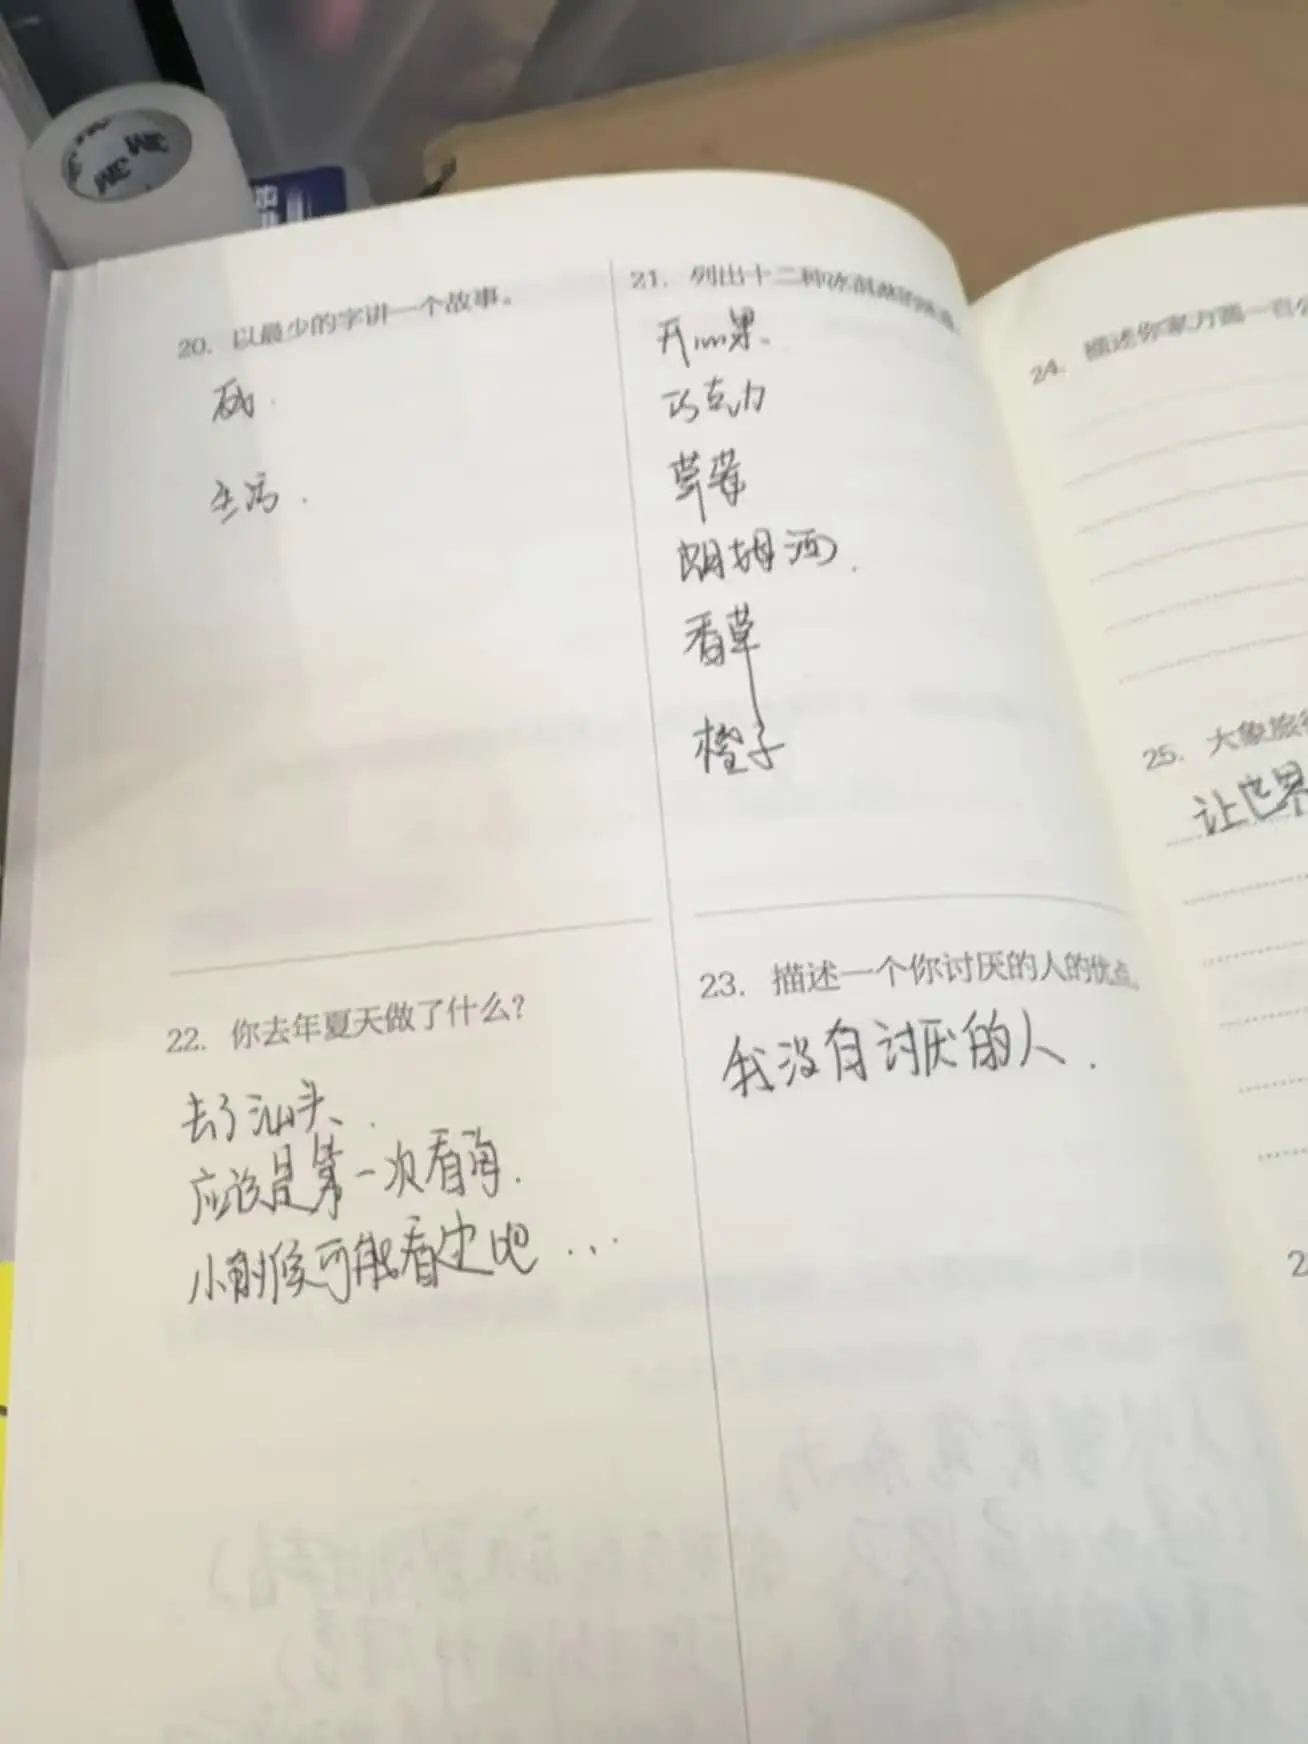 20. 以最少的字讲一个故事。
生活.
21. 列出十二种冰淇淋的味道。
开心果.
巧克力
草莓
朗姆酒.
香草
橙子
22. 你去年夏天做了什么?
去了汕头.
应该是第一次看海.
小时候可能看过吧...
23. 描述一个你讨厌的人的优点。
我没有讨厌的人.
24. 描述你家方圆一百公
25. 大象旅行
让世界
2